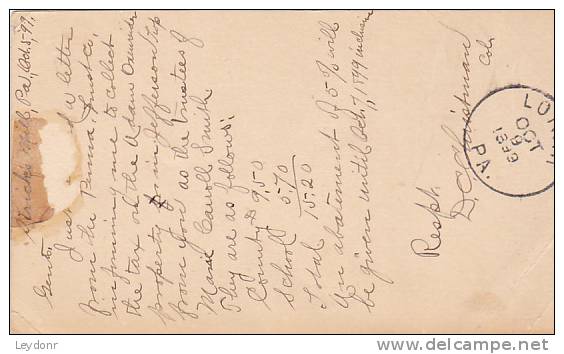 Pa., Oct. 5-99.
Gents:
Just a letter
from the Penna.
informing me to collect
the tax on the Adam
property in Jefferson Twp
from you as the trustees of
Carroll Smith.
They are as follows:
County $ 9.50
School 5.70
Total 15.20
An abatement of 5% will
be given until Oct. 7, 1899 inclusive
Resph.
Christman
Col.
OCT
6
PA.
Leydonr
delcampe.net